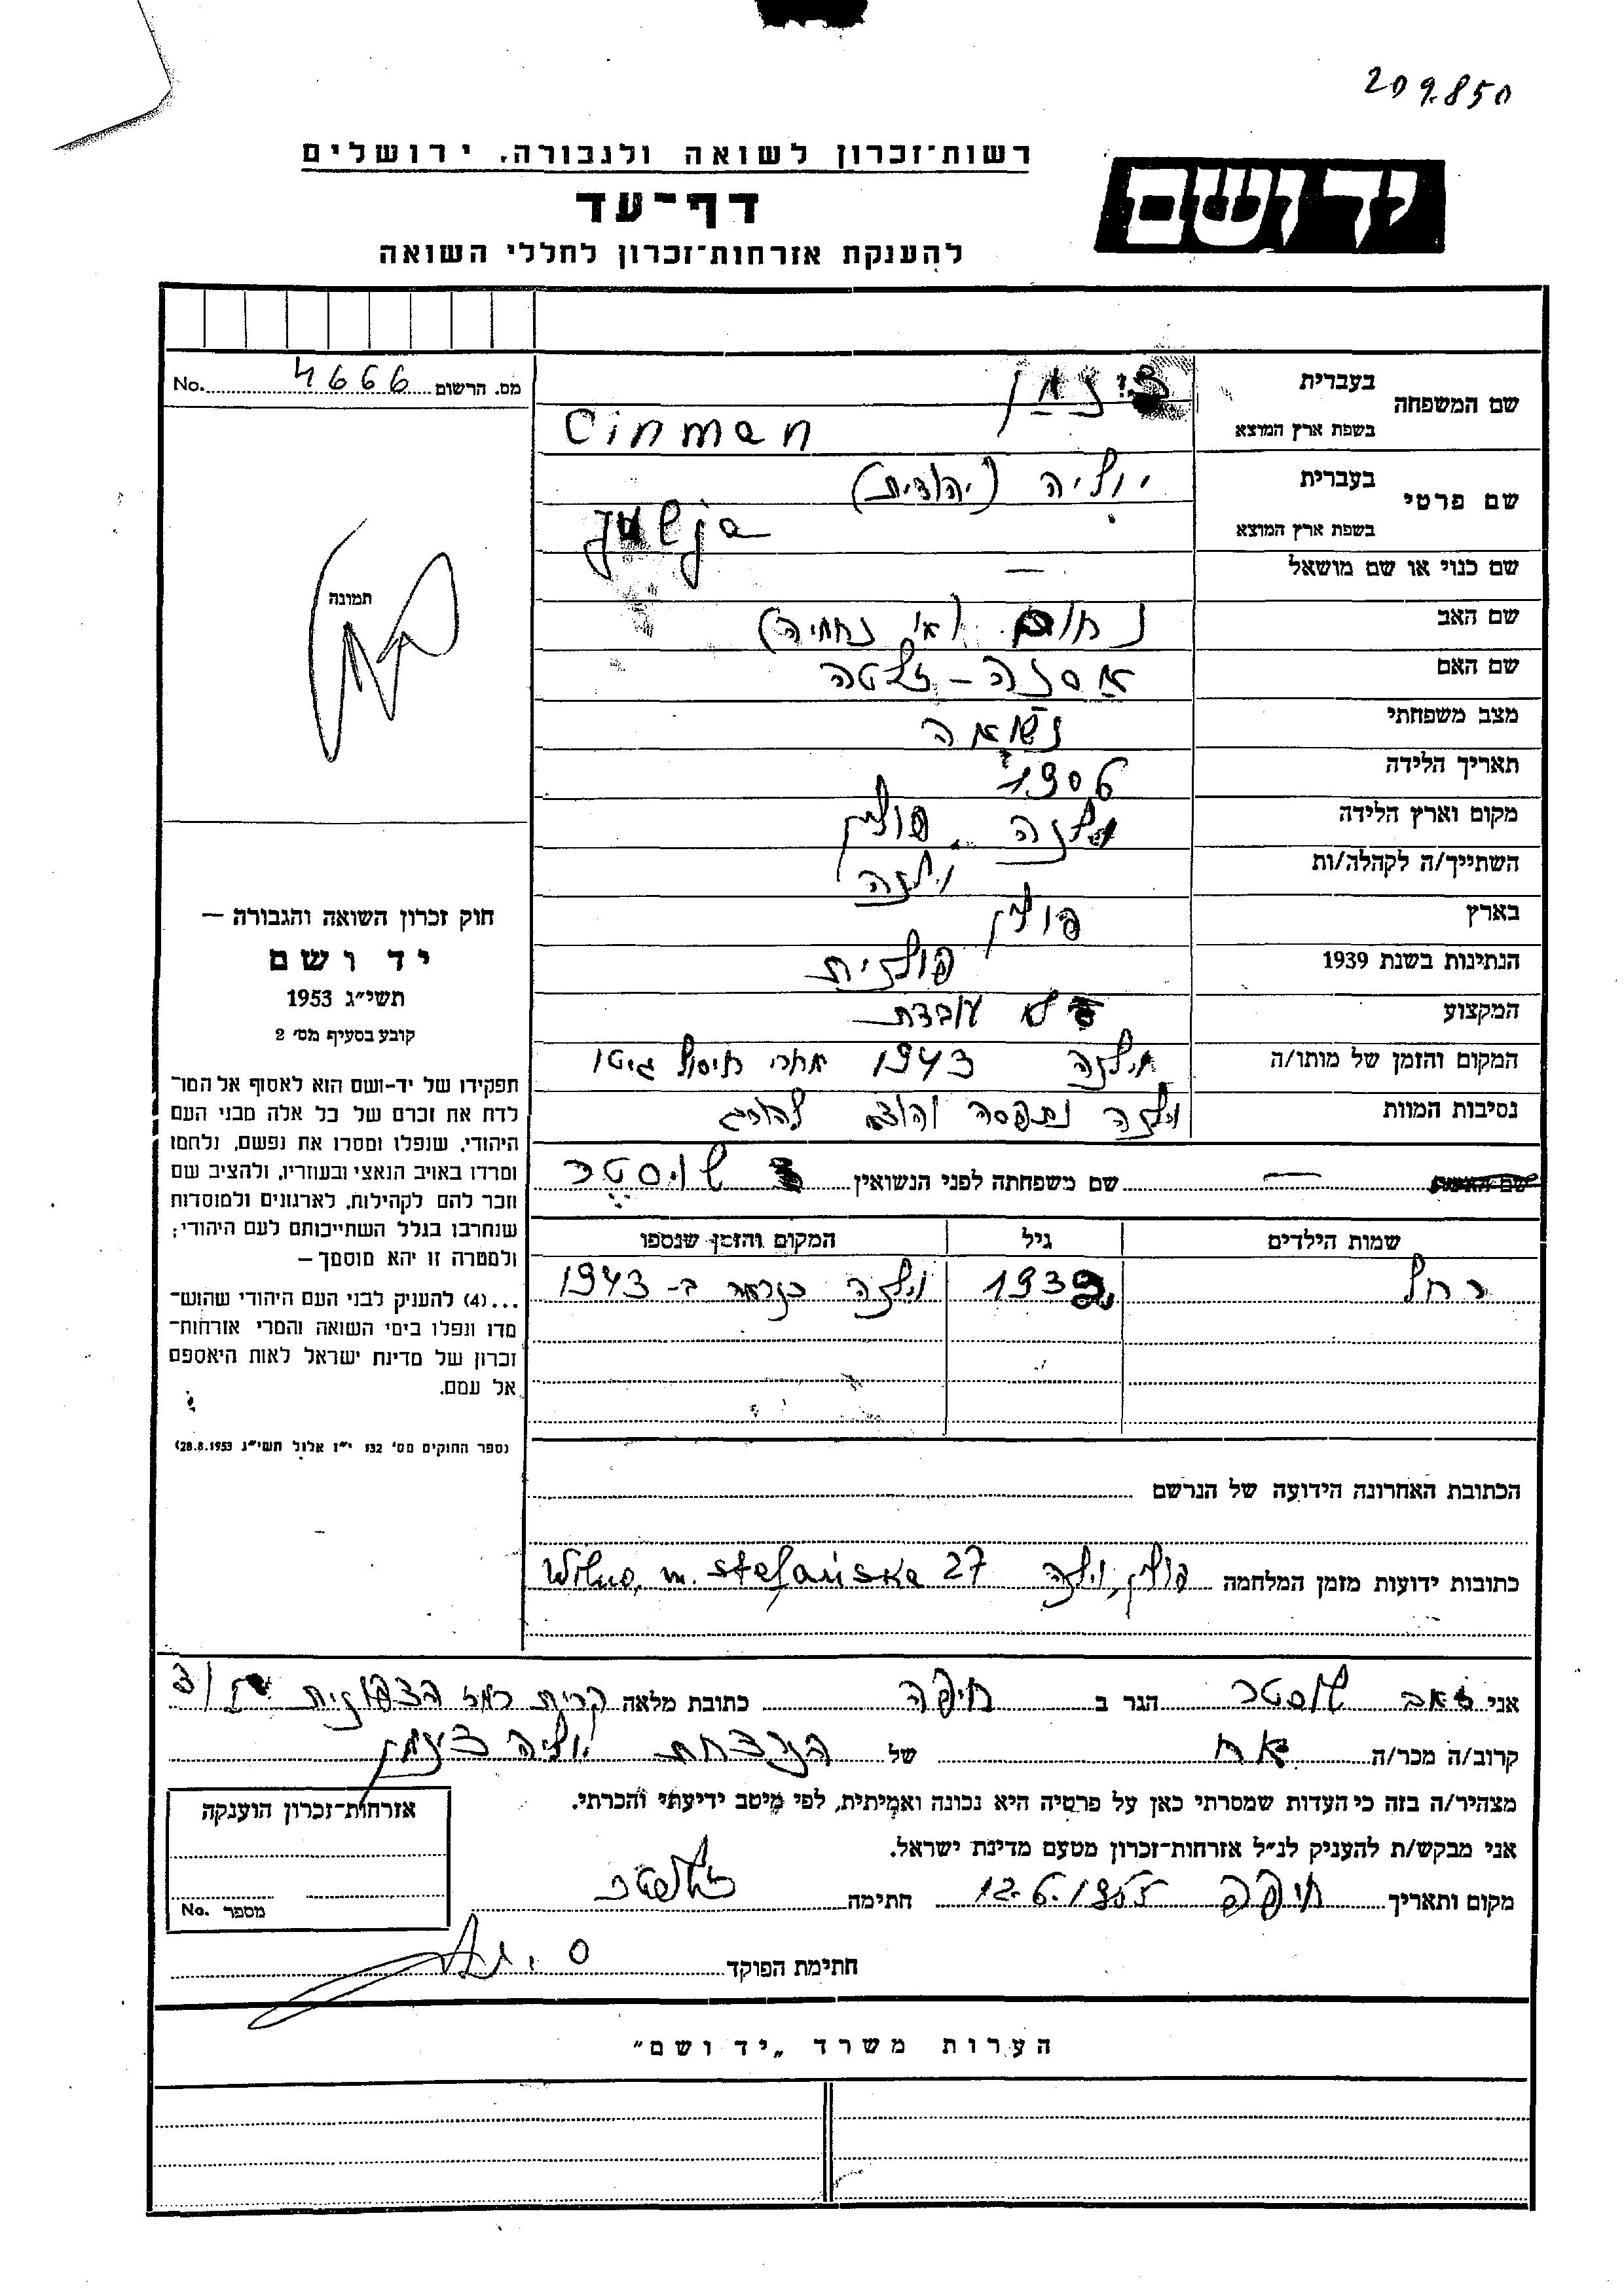 209.850
רשות־זכרון לשואה ולגבורה, ירושלים
יד ושם
דף־עד
להענקת אזרחות־זכרון לחללי השואה
מס. הרשום 4666 No.
שם המשפחה
בעברית צינמן
בשפת ארץ המוצא Cinman
שם פרטי
בעברית יוליה (יהודית)
בשפת ארץ המוצא Julja
שם כנוי או שם מושאל —
שם האב נחום (או נחמיה)
שם האם אסנה – זלטה
מצב משפחתי נשואה
תאריך הלידה 1906
מקום וארץ הלידה וילנה פולין
השתייך/ה לקהלה/ות וילנה
בארץ פולין
הנתינות בשנת 1939 פולנית
המקצוע לא עובדת
המקום והזמן של מותו/ה וילנה 1943 אחרי חיסול גיטו
נסיבות המוות וילנה נתפסה והוצא להורג
— שם משפחתה לפני הנשואין שוסטר
שמות הילדים גיל המקום והזמן שנספו
רחל 1939 וילנה כנראה ב- 1943
הכתובת האחרונה הידועה של הנרשם
כתובות ידועות מזמן המלחמה פולין, וילנה Wilno, m. Stefańska 27
תמונה
חוק זכרון השואה והגבורה —
יד ושם
תשי״ג 1953
קובע בסעיף מס׳ 2
תפקידו של יד-ושם הוא לאסוף אל המו־
לדת את זכרם של כל אלה מבני העם
היהודי, שנפלו ומסרו את נפשם, נלחמו
ומרדו באויב הנאצי ובעוזריו, ולהציב שם
וזכר להם לקהילות, לארגונים ולמוסדות
שנחרבו בגלל השתייכותם לעם היהודי;
ולמטרה זו יהא מוסמך —
...(4) להעניק לבני העם היהודי שהוש־
מדו ונפלו בימי השואה והמרי אזרחות־
זכרון של מדינת ישראל לאות היאספם
אל עמם.
(ספר החוקים מס׳ 132 י״ז אלול תשי״ג 28.8.1953)
אני זאב שוסטר הגר ב חיפה כתובת מלאה קרית הצפונית
קרוב/ה מכר/ה אח של הנרצחת יוליה צינמן
מצהיר/ה בזה כי העדות שמסרתי כאן על פרטיה היא נכונה ואמיתית, לפי מיטב ידיעתי והכרתי.
אני מבקש/ת להעניק לנ״ל אזרחות־זכרון מטעם מדינת ישראל.
מקום ותאריך חיפה 12.6.1955 חתימה
אזרחות־זכרון הוענקה
מספר No.
חתימת הפוקד
הערות משרד „יד ושם״